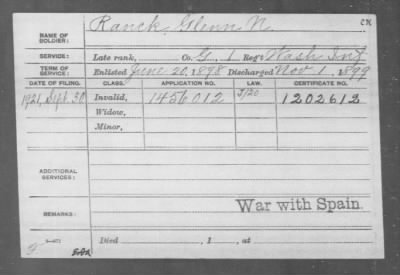 Ranck, Glenn N. CK
NAME OF SOLDIER:
SERVICE: Late rank, Co. G, 1 Reg't Wash Inf
TERM OF SERVICE: Enlisted June 20, 1898 Discharged Nov 1, 1899
DATE OF FILING. CLASS. APPLICATION NO. LAW. CERTIFICATE NO.
1921, Sept. 30 Invalid, 1456012 1202612
Widow,
Minor,
ADDITIONAL SERVICES:
War with Spain.
REMARKS:
Died , 1 , at